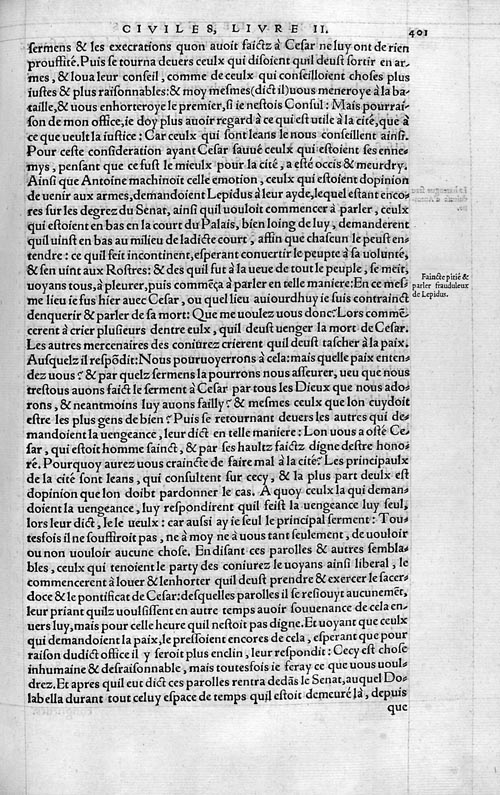 CIVILES, LIVRE II.
401
sermens & les execrations quon auoit faictz à Cesar ne luy ont de rien
prouffité. Puis se tourna deuers ceulx qui disoient quil deust sortir en ar-
mes, & loua leur conseil, comme de ceulx qui conseilloient choses plus
iustes & plus raisonnables: & moy mesmes (dict il) uous meneroye à la ba-
taille, & uous enhorteroye le premier, si ie nestois Consul: Mais pourrai-
son de mon office, ie doy plus auoir regard à ce qui est utile à la cité, que à
ce que ueult la iustice: Car ceulx qui sont leans le nous conseillent ainsi.
Pour ceste consideration ayant Cesar sauué ceulx qui estoient ses enne-
mys, pensant que ce fust le mieulx pour la cité, a esté occis & meurdry.
Ainsi que Antoine machinoit celle emotion, ceulx qui estoient dopinion
de uenir aux armes, demandoient Lepidus à leur ayde, lequel estant enco-
res sur les degrez du Senat, ainsi quil uouloit commencer à parler, ceulx
qui estoient en bas en la court du Palais, bien loing de luy, demanderent
quil uinst en bas au milieu de ladicte court, affin que chascun le peust en-
tendre: ce quil feit incontinent, esperant conuertir le peuple à sa uolunté,
& sen uint aux Rostres: & des quil fut à la ueue de tout le peuple, se meit,
uoyans tous, à pleurer, puis commēça à parler en telle maniere: En ce mes-
me lieu ie fus hier auec Cesar, ou quel lieu auiourdhuy ie suis contrainct
denquerir & parler de sa mort: Que me uoulez uous donc? Lors comme-
cerent à crier plusieurs dentre eulx, quil deust uenger la mort de Cesar.
Les autres mercenaires des coniurez crierent quil deust tascher à la paix.
Ausquelz il respōdit: Nous pouruoyerrons à cela: mais quelle paix enten-
dez uous? & par quelz sermens la pourrons nous asseurer, ueu que nous
trestous auons faict le serment à Cesar par tous les Dieux que nous ado-
rons, & neantmoins luy auons failly? & mesmes ceulx que lon cuydoit
estre les plus gens de bien? Puis se retournant deuers les autres qui de-
mandoient la uengeance, leur dict en telle maniere: Lon uous a osté Ce-
sar, qui estoit homme sainct, & par ses haultz faictz digne destre hono-
ré. Pourquoy aurez uous craincte de faire mal à la cité? Les principaulx
de la cité sont leans, qui consultent sur cecy, & la plus part deulx est
dopinion que lon doibt pardonner le cas. A quoy ceulx la qui deman-
doient la uengeance, luy respondirent quil feist la uengeance luy seul,
lors leur dict, Ie le ueulx: car aussi ay ie seul le principal serment: Tou-
tesfois il ne souffiroit pas, ne à moy ne à uous tant seulement, de uouloir
ou non uouloir aucune chose. En disant ces parolles & autres sembla-
bles, ceulx qui tenoient le party des coniurez le uoyans ainsi liberal, le
commencerent à louer & lenhorter quil deust prendre & exercer le sacer-
doce & le pontificat de Cesar: desquelles parolles il se resiouyt aucunemēt,
leur priant quilz uoulsissent en autre temps auoir souuenance de cela en-
uers luy, mais pour celle heure quil nestoit pas digne. Et uoyant que ceulx
qui demandoient la paix, le pressoient encores de cela, esperant que pour
raison dudict office il y seroit plus enclin, leur respondit: Cecy est chose
inhumaine & desraisonnable, mais toutesfois ie feray ce que uous uoul-
drez. Et apres quil eut dict ces parolles rentra dedās le Senat, auquel Do-
labella durant tout celuy espace de temps quil estoit demeuré là, depuis
que
Faincte pitié &
parler frauduleux
de Lepidus.